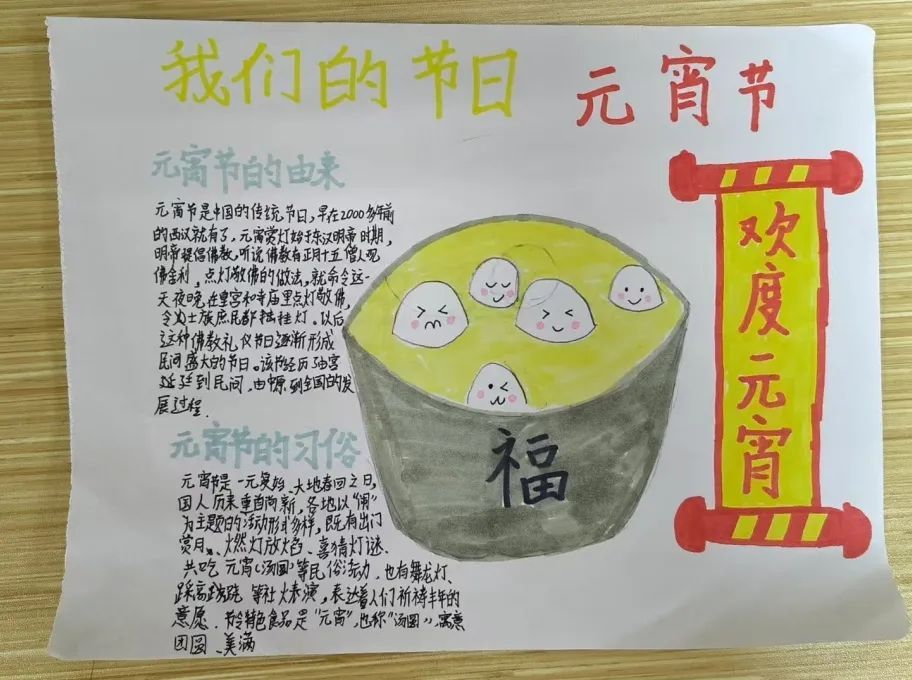 我们的节日
元宵节
元宵节的由来
元宵节是中国的传统节日,早在2000多年前
的西汉就有了,元宵赏灯始于东汉明帝时期,
明帝提倡佛教,听说佛教有正月十五僧人观
佛舍利,点灯敬佛的做法,就命令这一
天夜晚在皇宫和寺庙里点灯敬佛,
令士族庶民都挂灯。以后
这种佛教礼仪节日逐渐形成
民间盛大的节日。该节经历由宫
廷到民间,由中原到全国的发
展过程.
元宵节的习俗
元宵节是一元复始、大地春回之日,
国人历来重酉向新,各地以"闹"
为主题的活动形式多样,既有出门
赏月、燃灯放焰、喜猜灯谜、
共吃元宵(汤圆)等民俗活动,也有舞龙灯、
踩高跷等社火表演,表达着人们祈祷丰年的
意愿.节令特色食品是"元宵",也称"汤圆",寓意
团圆、美满
福
欢度元宵